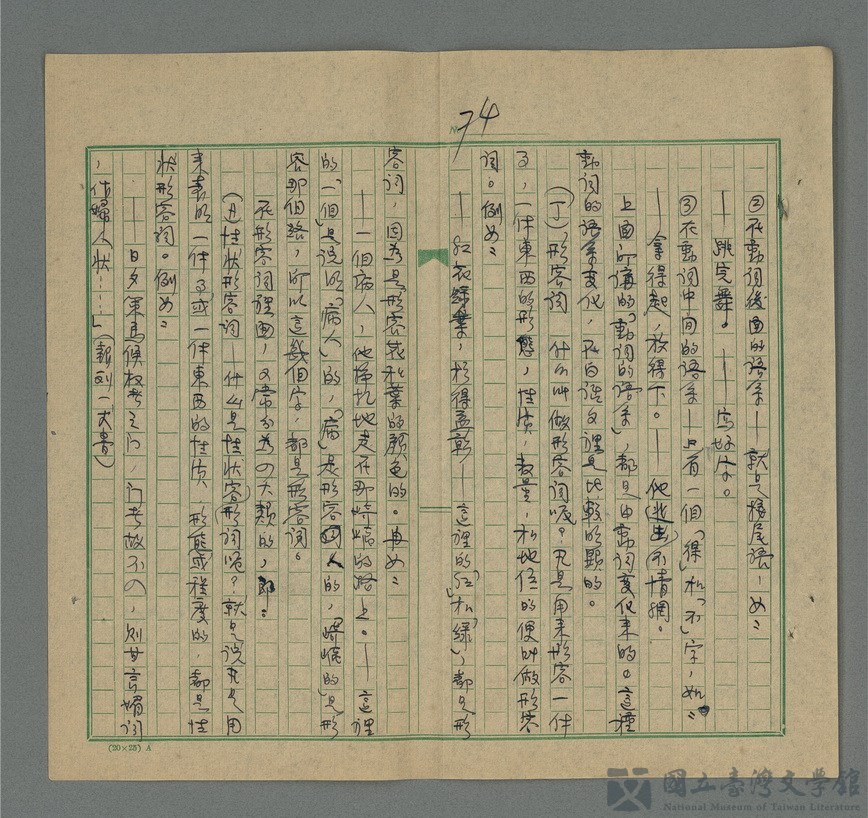 74
②在動詞後面的語系——就是接尾語,如:
——跳完舞。——寫好字。
③在動詞中間的語系——只有一個「得」和「不」字,如:
——拿得起,放得下。——他逃出不情網。
上面所講的「動詞的語系」,都是由動詞變化來的。這種
動詞的語系變化,在白話文裡是比較明顯的。
(丁)形容詞 什么叫做形容詞呢?凡是用來形容一件
事,一件東西的形態,性質,數量,和地位的便叫做形容
詞。例如:
——紅花綠葉,——這裡的「紅」和「綠」,都是形
容詞,因為是形容花和葉的顏色的。再如:
——一個病人,他掙扎地走在那崎嶇的路上。——這裡
的「一個」是說明「病人」的,「病」是形容人的,「崎嶇的」是形
容那個路,所以這幾個字,都是形容詞。
在形容詞裡面,又常分為四大類的,即:
(A)性狀形容詞——什么是性狀形容詞呢?就是說凡是用
來表明一件事或一件東西的性質、形態或程度的,都是性
狀形容詞。例如:
——日夕策馬候权者之门,门者故不入,则甘言媚词
,作婦人狀……」(報刘一丈書)
(20×25) A
國立臺灣文學館
National Museum of Taiwan Literature